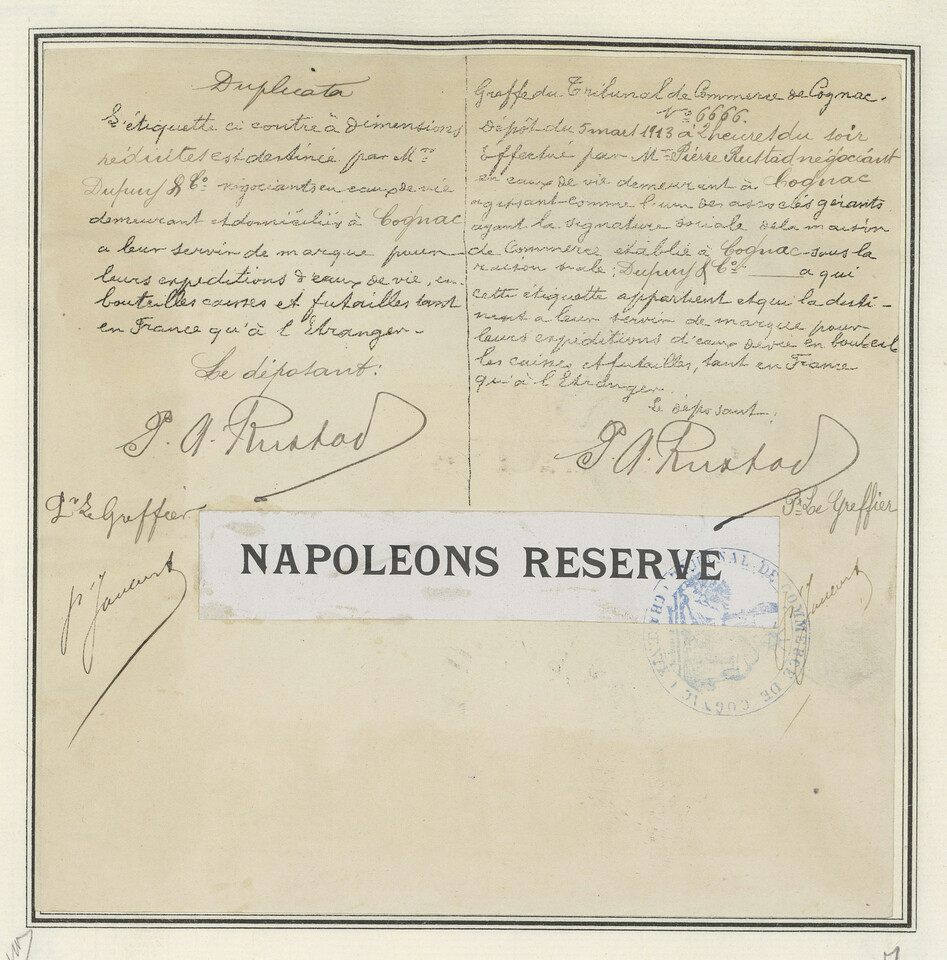 Duplicata
L'étiquette ci contre à dimensions
réduites est destinée par Mrs
Dupuy & Co négociants en eaux de vie
demeurant et domiciliés à Cognac
a leur servir de marque pour
leurs expeditions d'eaux de vie, en
bouteilles caisses et futailles tant
en France qu'à l'Etranger.
Le déposant:
P. A. Rustad
Pr Le Greffier
Greffe du Tribunal de Commerce de Cognac.
No 6666.
Dépôt du 5 mars 1913 à 2 heures du soir
Effectué par Mr Pierre Rustad négociant
en eaux de vie demeurant à Cognac
agissant comme l'un des associés gérants
ayant la signature sociale de la maison
de Commerce etablie à Cognac sous la
raison sociale: Dupuy & Co a qui
cette étiquette appartient et qui la desti-
nent a leur servir de marque pour
leurs expéditions d'eaux de vie en bouteil
les caisses et futailles, tant en France
qu'à l'Etranger
Le déposant:
P. A. Rustad
Pr Le Greffier
NAPOLEONS RESERVE
TRIBUNAL DE COMMERCE DE COGNAC (CHARENTE)